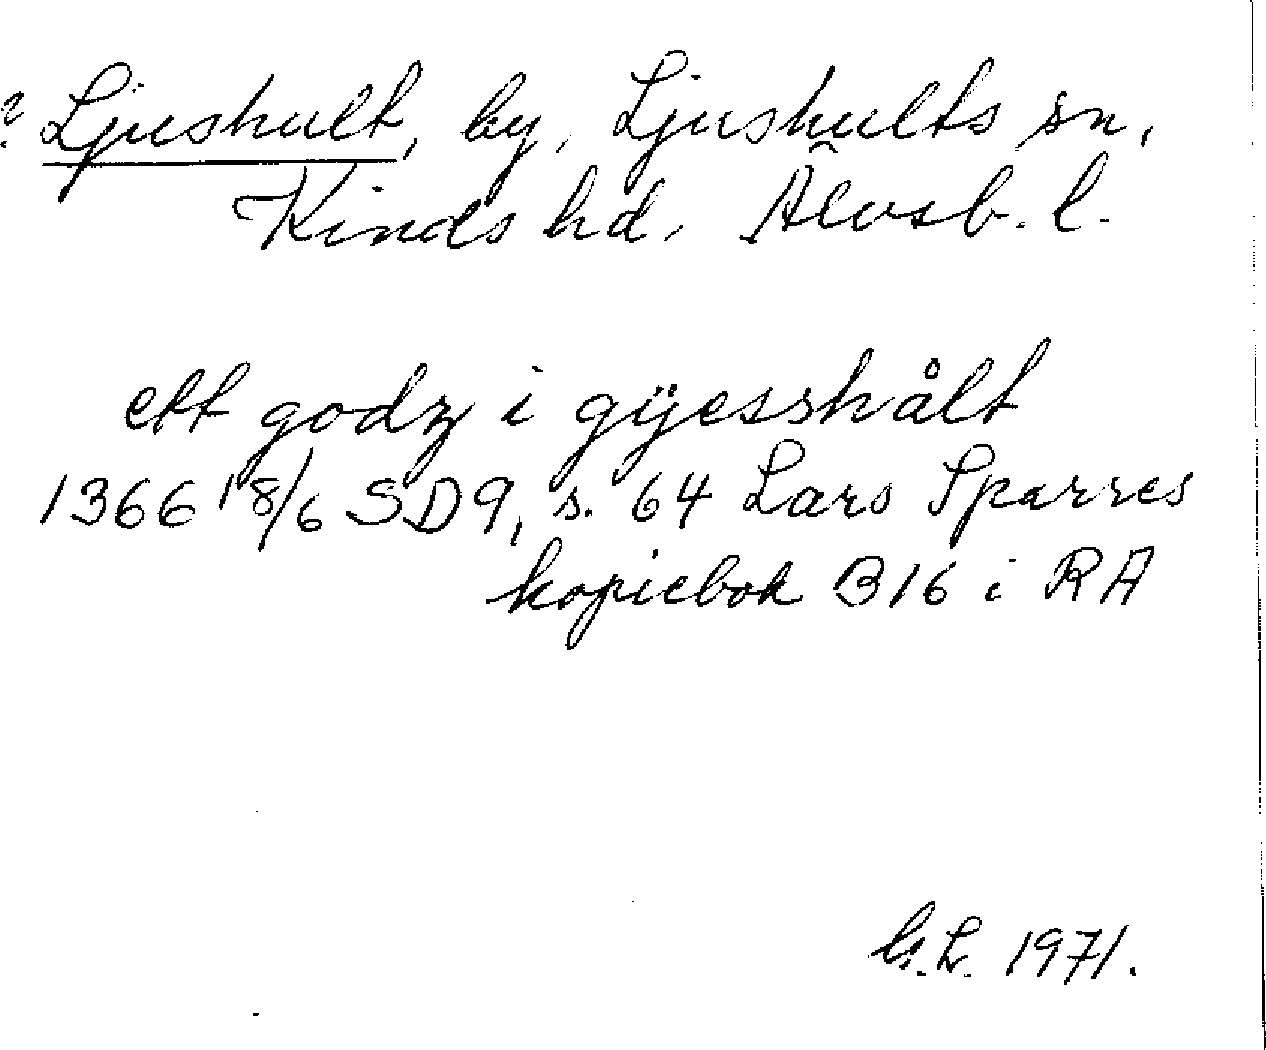 ? Ljushult, by, Ljushults sn,
Kinds hd, Älvsb. l.
ett godz i gÿesshålt
1366 18/6 SD9, s. 64 Lars Sparres
kopiebok B16 i RA
G.L. 1971.